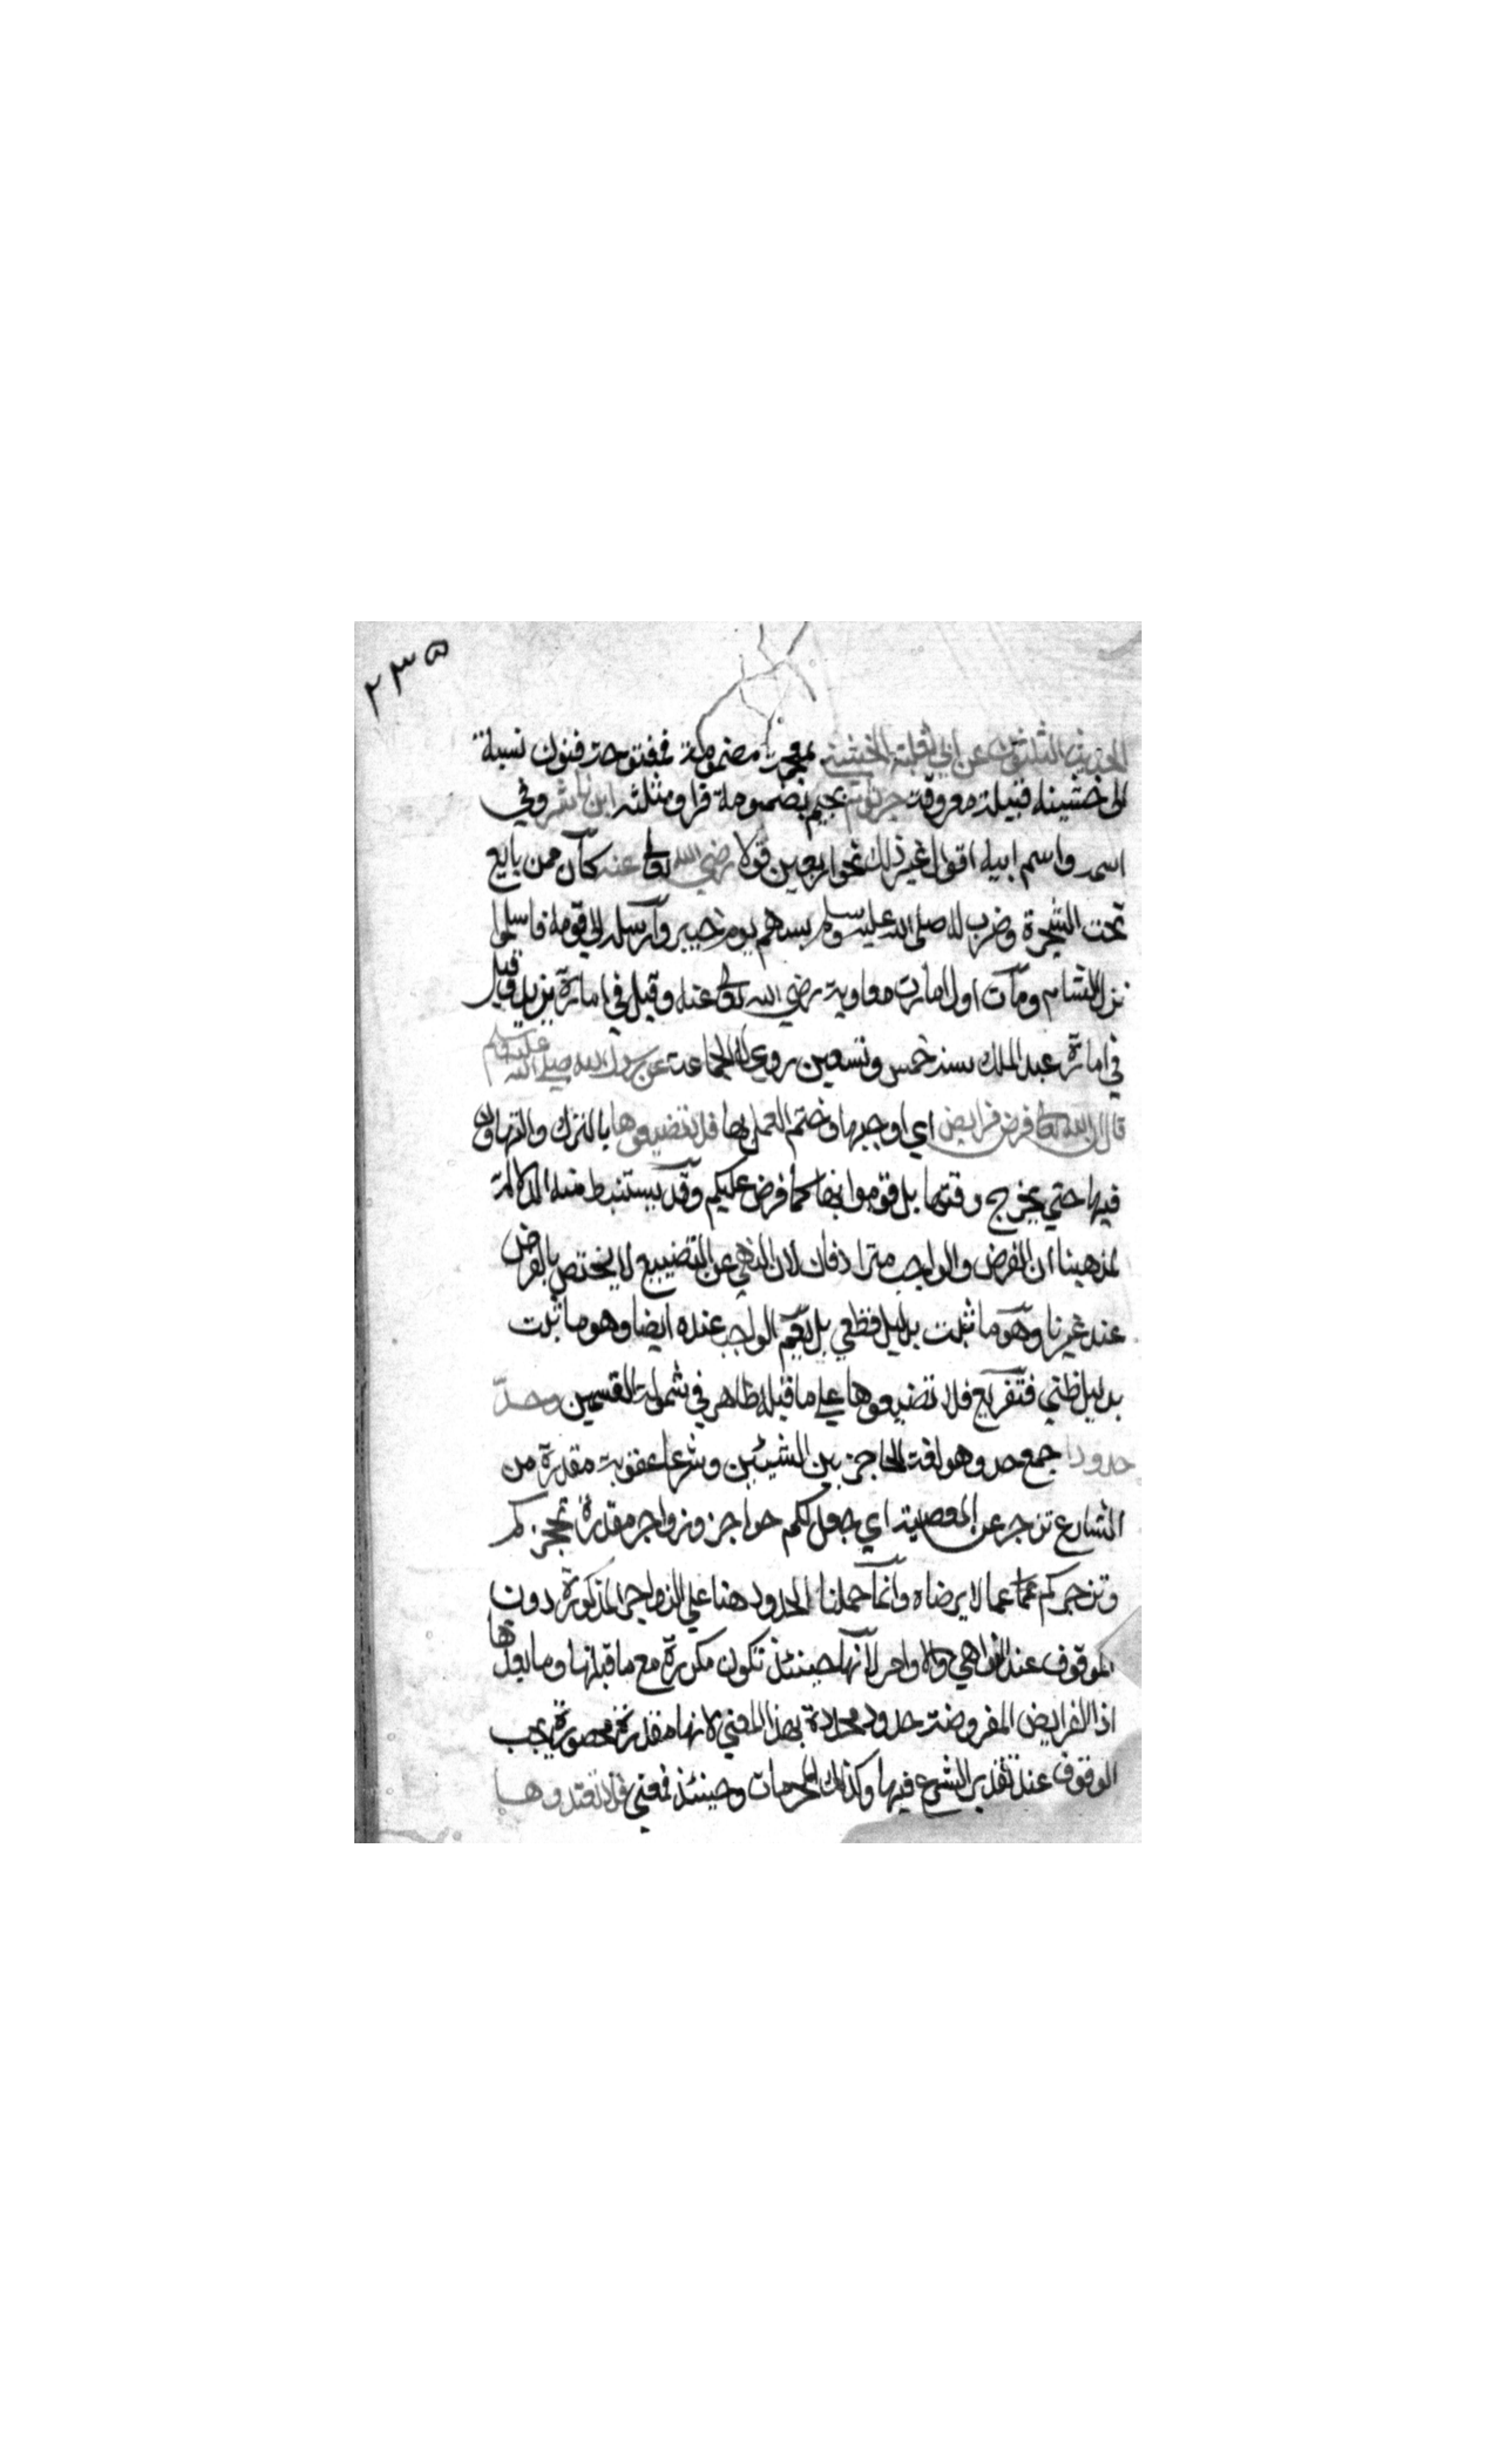 ٢٣٥
الحديث الثلثون عن ابي ثعلبة الخشني بمعجمة مضمومة فمفتوحة فنون نسبة
الى خشينه قبيلة معروفة جرثوم بجيم مضمومة فرا ومثلثه ابن ناشر وفي
اسمه واسم ابيه اقوال غير ذلك نحو اربعين قولا رضي الله تعالى عنه كان ممن بايع
تحت الشجرة وضرب له صلى الله عليه وسلم بسهم يوم خيبر وارسله الى قومه فاسلموا
نزل الشام ومات اول امارت معاوية رضي الله تعالى عنه وقيل في امارة يزيد وقيل
في امارة عبد الملك سنة خمس وتسعين روى له الجماعة عن رسول الله صلى الله عليه وسلم
قال ان الله تعالى فرض فرايض اي اوجبها وحتم العمل بها فلا تضيعوها بالترك والتهاون
فيها حتي يخرج وقتها بل قوموا بها كما فرض عليكم وقد يستنبط منه الدلالة
لمذهبنا ان الفرض والواجب مترادفان لان النهي عن التضييع لا يختص بالفرض
عند غيرنا وهو ما ثبت بدليل قطعي بل يعم الواجب عنده ايضا وهو ما ثبت
بدليل ظني فتفريع فلا تضيعوها علي ما قبله ظاهر في شموله القسمين وحدّ
حدودا جمع حد وهو لغة الحاجز بين الشيئين وشرعا عقوبة مقدرة من
الشارع تزجر عن المعصية اي جعل لكم حواجز وزواجر مقدرة تحجزكم
وتزجركم عما عما لا يرضاه وانما حملنا الحدود هنا علي الزواجر المذكورة دون
الموقوف عند النواهي والاوامر لانها حينئذ تكون مكررة مع ما قبلها وما بعدها
اذ الفرايض المفروضة حدود محددة بهذا المعني لانها مقدرة محصورة يجب
الوقوف عند تقدير الشرع فيها وكذلك المحرمات وحينئذ فمعني فلا تعتدوها